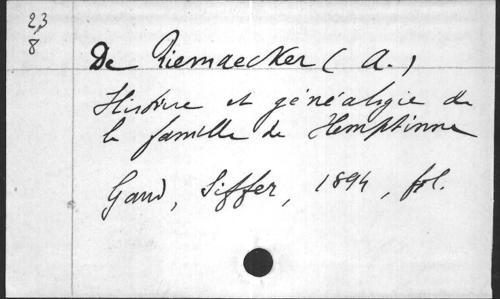 23
8
De Riemaecker (A.)
Histoire et généalogie de
la famille de Hemptinne
Gand, Siffer, 1894, fol.